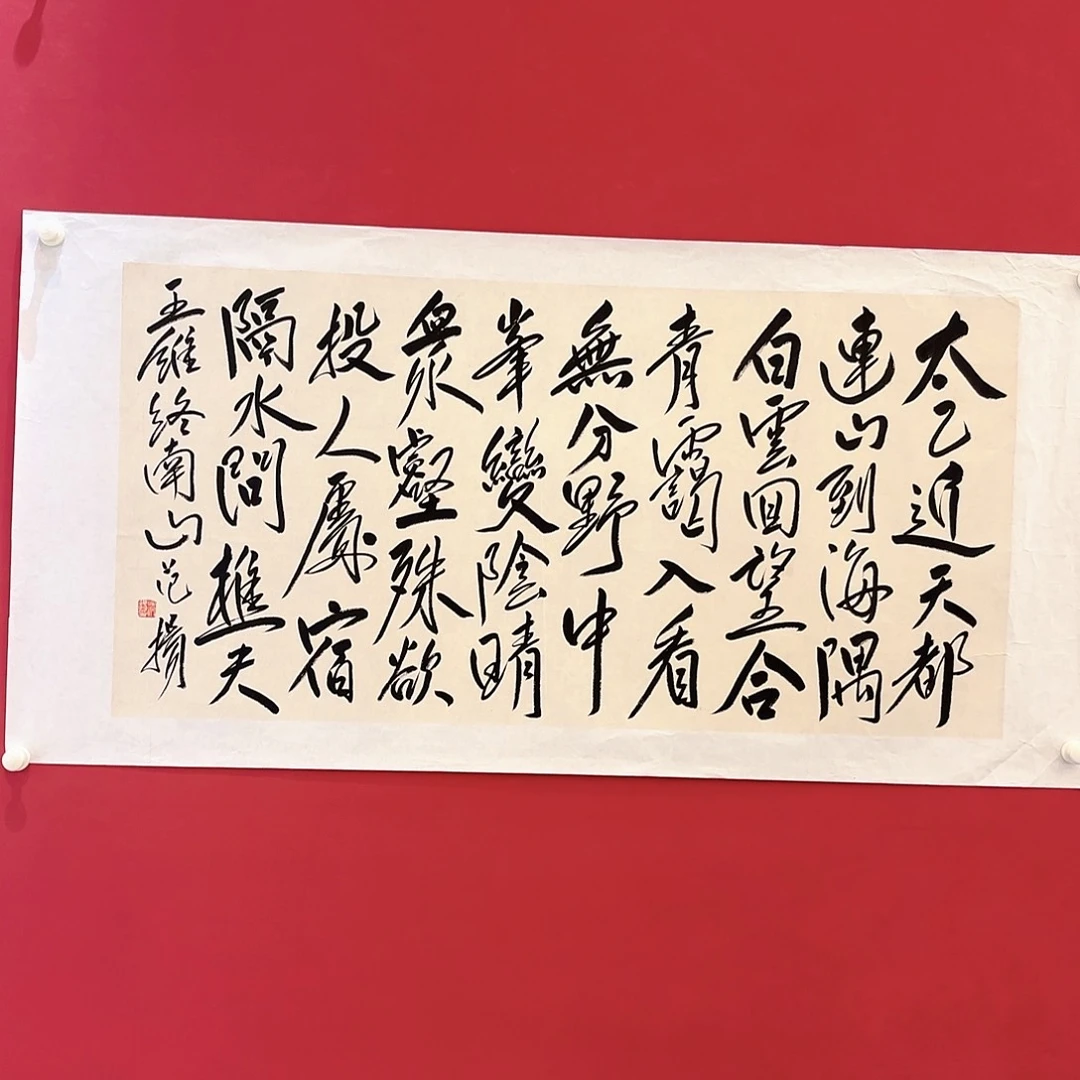 太乙近天都
連山到海隅
白雲回望合
青靄入看
無分野中
峯變陰晴
衆壑殊欲
投人處宿
隔水問樵夫
王維終南山范揚